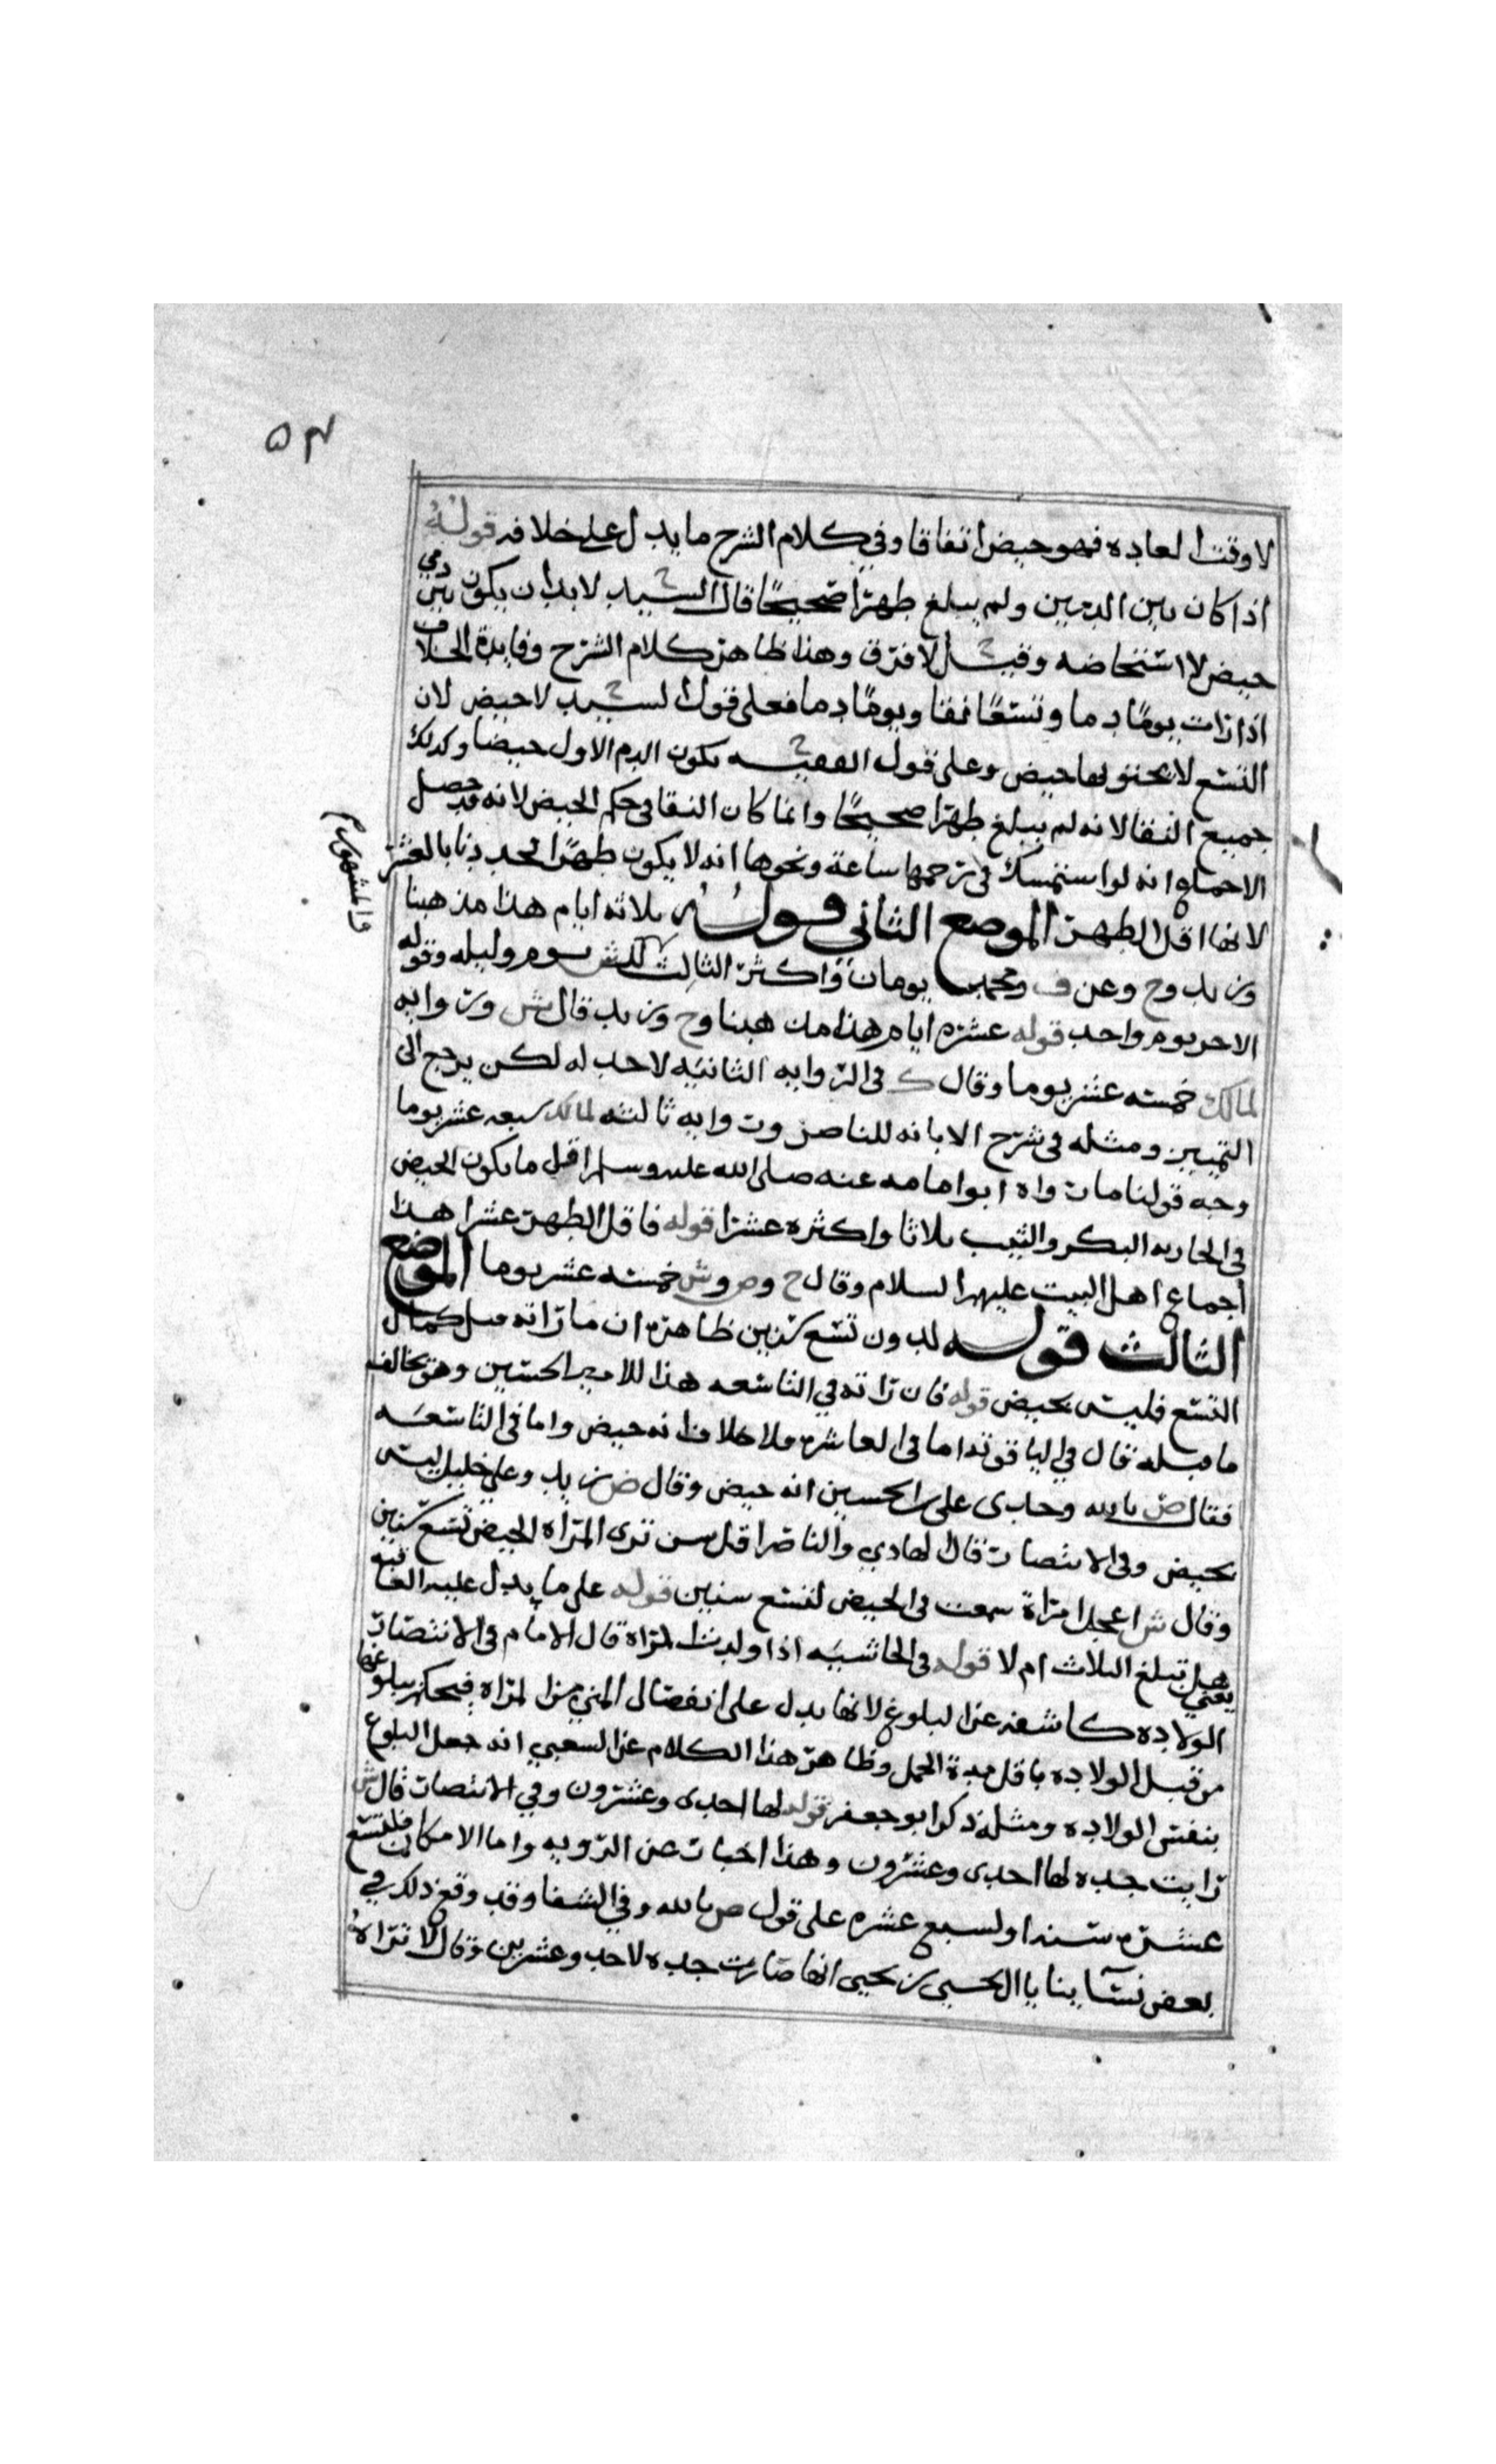 ٥٣
لا وقت العاده فهو حيض اتفاقا وفي كلام الشرح ما يدل على خلافه قوله
اذا كان بين الدمين ولم يبلغ طهرا صحيحا قال السيد لا بد ان يكون بين دمي
حيض لا استحاضه وقيل لا فرق وهذا ظاهر كلام الشرح وفايدة الخلاف
اذا رات يوما دما وتسعا نقا ويوما دما فعلى قول السيد لا حيض لان
التسع لا يحتو بها حيض وعلى قول الفقيه يكون الدم الاول حيضا وكذلك
جميع النقا لانه لم يبلغ طهرا صحيحا وانما كان النقا في حكم الحيض لانه قد حصل
الاجماع انه لو استمسك في رحمها ساعة ونحوها انه لا يكون طهرا فحددنا بالعشر
لانها اقل الطهر الموضع الثاني قوله ثلاثه ايام هذا مذهبنا
وزيد وح وعن ف ومحمد يومان واكثر الثالث ش يوم وليله وقوله
الاخر يوم واحد قوله عشره ايام هذا مذهبنا وح وزيد قال ش وروايه
لمالك خمسه عشر يوما وقال ك في الروايه الثانيه لا حد له لكن يرجع الى
التمييز ومثله في شرح الابانه للناصر وروايه ثالثه لمالك سبعه عشر يوما
وجه قولنا ما رواه ابو امامه عنه صلى الله عليه وسلم اقل ما يكون الحيض
في الجاريه البكر والثيب ثلاثا واكثره عشرا قوله فاقل الطهر عشرا هذا
اجماع اهل البيت عليهم السلام وقال ح وص وش خمسه عشر يوما الموضع
الثالث قوله لدون تسع سنين ظاهره ان ما راته قبل كمال
التسع فليس بحيض قوله فان راته في التاسعه هذا للامير الحسين وهو يخالف
ما قبله قال في الياقوته اما في العاشره فلا خلاف انه حيض واما في التاسعه
فقال ص بالله وحادى على الحسين انه حيض وقال ض زيد وعلي خليل ليس
بحيض وفي الانتصار قال الهادي والناصر اقل سن ترى المراه الحيض تسع سنين
وقال ش اعجل امراة سمعت في الحيض لتسع سنين قوله على ما يدل عليه الغالب
يعني هل تبلغ الثلاث ام لا قوله في الحاشيه اذا ولدت المراه قال الامام في الانتصار
الولاده كاشفه عن البلوغ لانها يدل على انفصال المني من المراه فيحكم ببلوغها
من قبل الولاده باقل مدة الحمل وظاهر هذا الكلام عن السعبي انه جعل البلوغ
بنفس الولاده ومثله ذكر ابو جعفر قوله لها احدى وعشرون وفي الانتصار قال ش
رايت جده لها احدى وعشرون وهذا اخبار عن الرويه واما الامكان فلتسع
عشره سنه او لسبع عشره على قول ص بالله وفي الشفا وقد وقع ذلك في
بعض نسآ بنا يا الحسي بن يحيى انها صارت جده لاحد وعشرين وقال لا تراه